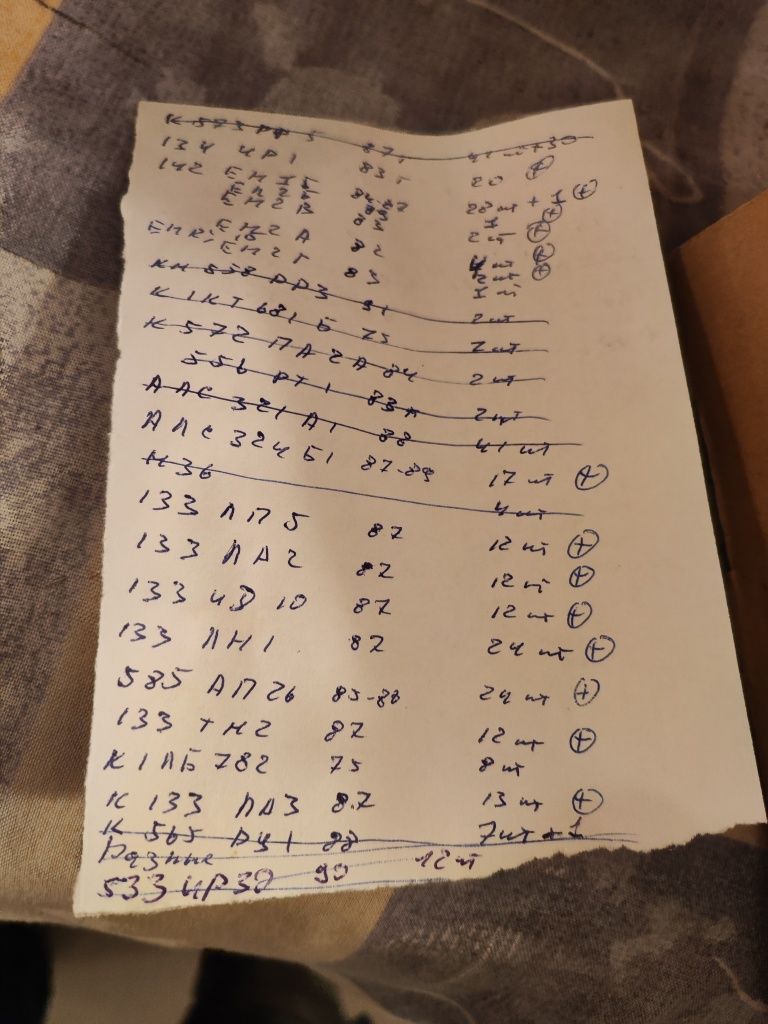 К 573 РФ 5 87г 41 шт+30
134 ИР1 83г 20 (+)
142 ЕН1Б 84-87 28 шт + 1 (+)
ЕН2Б
ЕН2В 2 шт (+)
ЕН2А 82
ЕН2Г 83
КМ 558 РР3 91 2 шт
К1КТ 681 Б 75 7 шт
К 572 ПА 2А 84 2 шт
556 РТ1 83г 2 шт
АЛС 321А1 88 41 шт
АЛС 324Б1 87-89 17 шт (+)
Н36 4 шт
133 ЛП5 87 12 шт (+)
133 ЛА2 87 12 шт (+)
133 ИД 10 87 12 шт (+)
133 ЛН1 87 24 шт (+)
585 АП26 85-88 24 шт (+)
133 ТМ2 87 12 шт (+)
К1ЛБ782 75 8 шт
К 133 ЛА3 87 13 шт (+)
К 565 РУ1 88 7шт+1
Разные
533 ИР30 90 12 шт